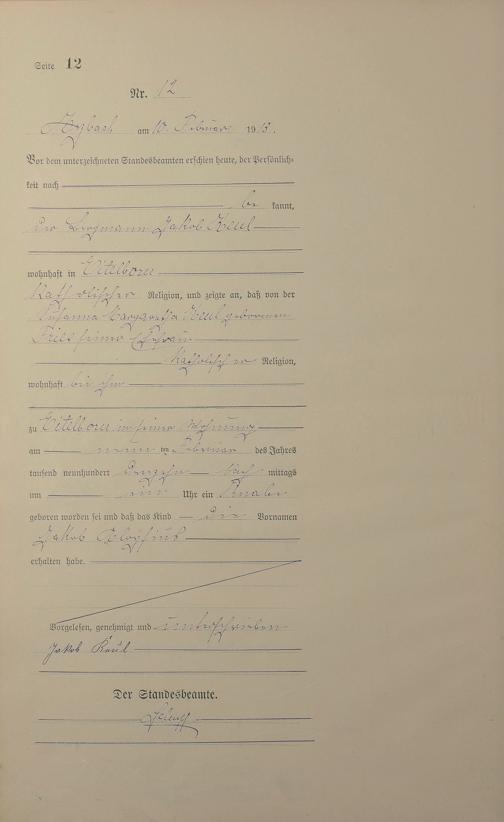 Seite 12
Nr. 12
am 10. Februar 1913.
Vor dem unterzeichneten Standesbeamten erschien heute, der Persönlich-
keit nach
be kannt,
der Bergmann Jakob Keul
wohnhaft in Eitelborn
Katholischer Religion, und zeigte an, daß von der
Susanna Margaretha Keul geborenen
seiner Ehefrau
katholischer Religion,
wohnhaft bei ihm
zu Eitelborn in seiner Wohnung
am neun ten Februar des Jahres
tausend neunhundert dreizehn Nach mittags
um Uhr ein Knabe
geboren worden sei und daß das Kind die Vornamen
Jakob Aloysius
erhalten habe.
Vorgelesen, genehmigt und unterschrieben
Jakob Keul
Der Standesbeamte.